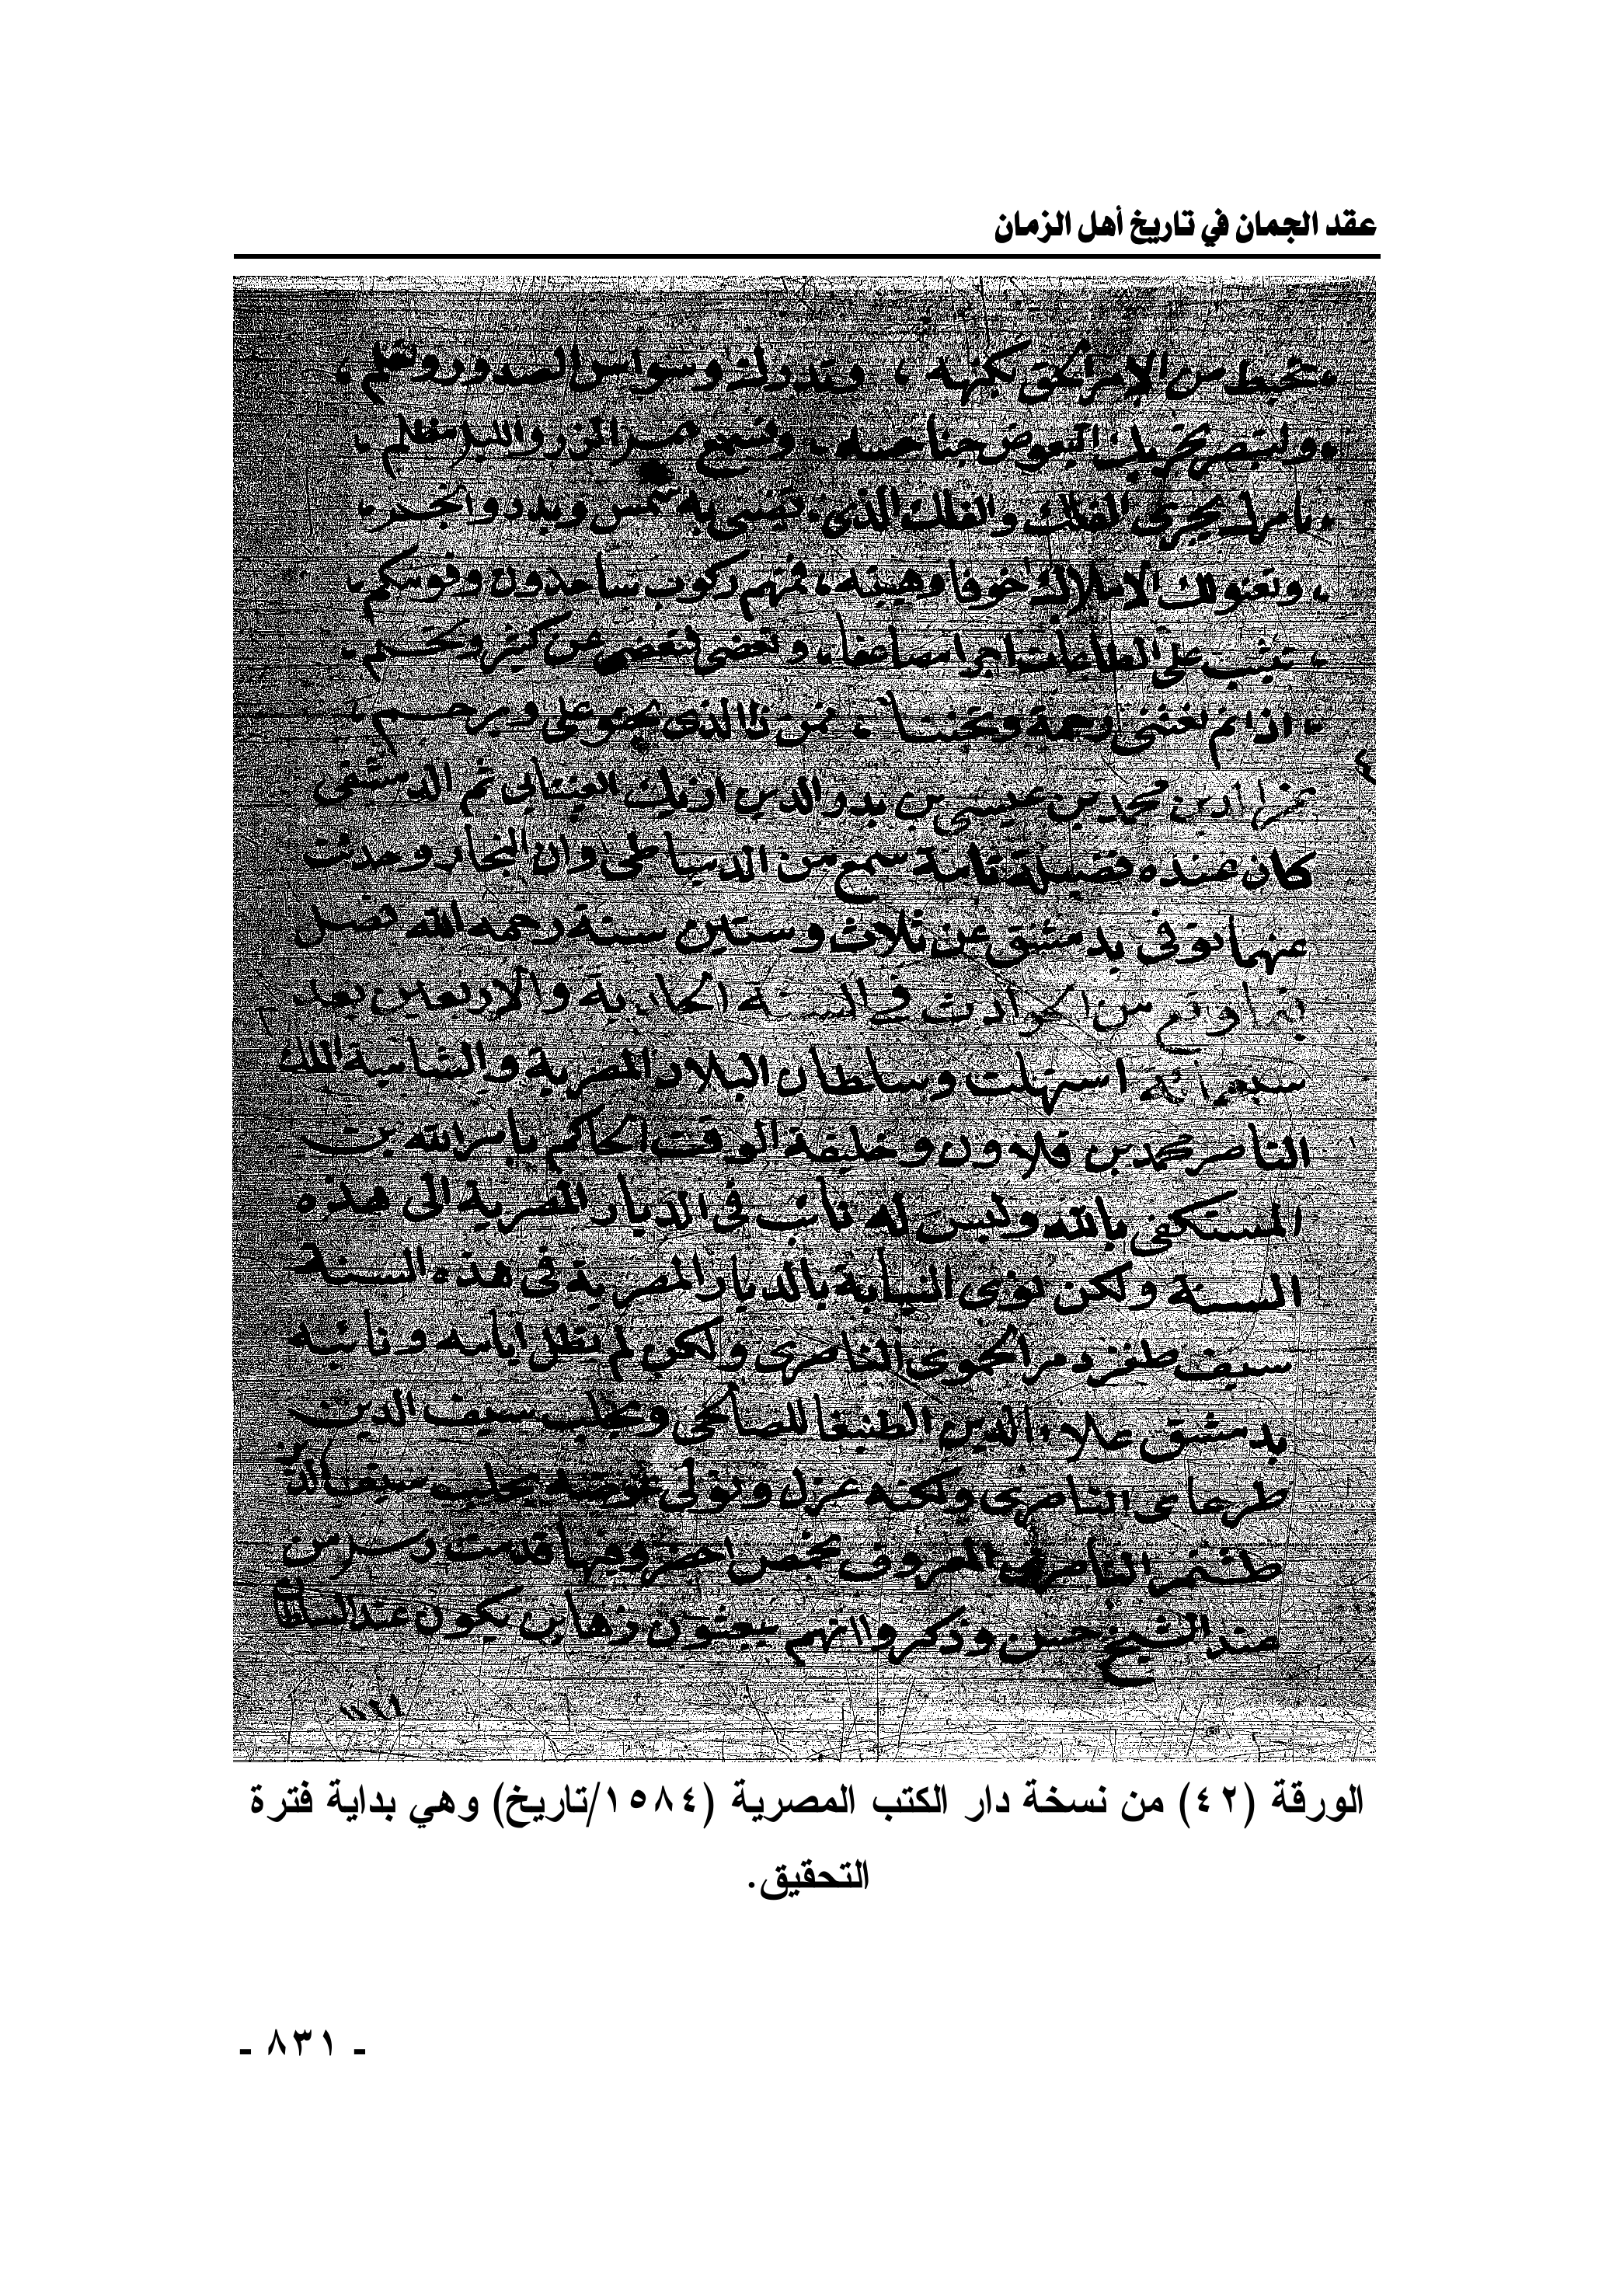 عقد الجمان في تاريخ أهل الزمان
تحيط من الامر الخفي بكنهه ، وتدرك وسواس الصدور وتعلم ،
وتبصر تحريك البعوض جناحه ، وتسمع والليل مظلم ،
بامرك يجري الفلك والفلك الذي ، يضيء به شمس وبدر وانجم ،
وتعنو لك الاملاك خوفا وهيبة ، فمنهم ركوب ساجدون وقوم
تثيب على الطاعات اجرا مضاعفا ، وتغضي عن كثير وتحلم ،
اذا لم تغثني رحمة وتحننا ، فمن ذا الذي يحنو علي ويرحم ،
عز الدين محمد بن عيسى بن بدر الدين العينتابي ثم الدمشقي
كان عنده فضيلة تامة سمع من الدمياطي وابن النجار وحدث
عنهما توفي بدمشق عن ثلاث وستين سنة رحمه الله فصل
فيما وقع من الحوادث في السنة الحادية والاربعين بعد
سبعمائة استهلت وسلطان البلاد المصرية والشامية الملك
الناصر محمد بن قلاوون وخليفة الوقت الحاكم بامر الله بن
المستكفي بالله وليس له نائب في الديار المصرية الى هذه
السنة ولكن تولى النيابة بالديار المصرية في هذه السنة
سيف طغزدمر الحموي الناصري ولكن لم تطل ايامه ونائبه
بدمشق علاء الدين الطنبغا الصالحي وبحلب سيف الدين
طرغاي الناصري ولكنه عزل وتولى عوضه بحلب سيف الدين
طشتمر الناصري المعروف بحمص اخضر وفيها قدمت رسل من
عند الشيخ حسن وذكروا انهم يبعثون رهاين يكون عند السلطان
الورقة (٤٢) من نسخة دار الكتب المصرية (١٥٨٤/تاريخ) وهي بداية فترة
التحقيق.
- ٨٣١ -